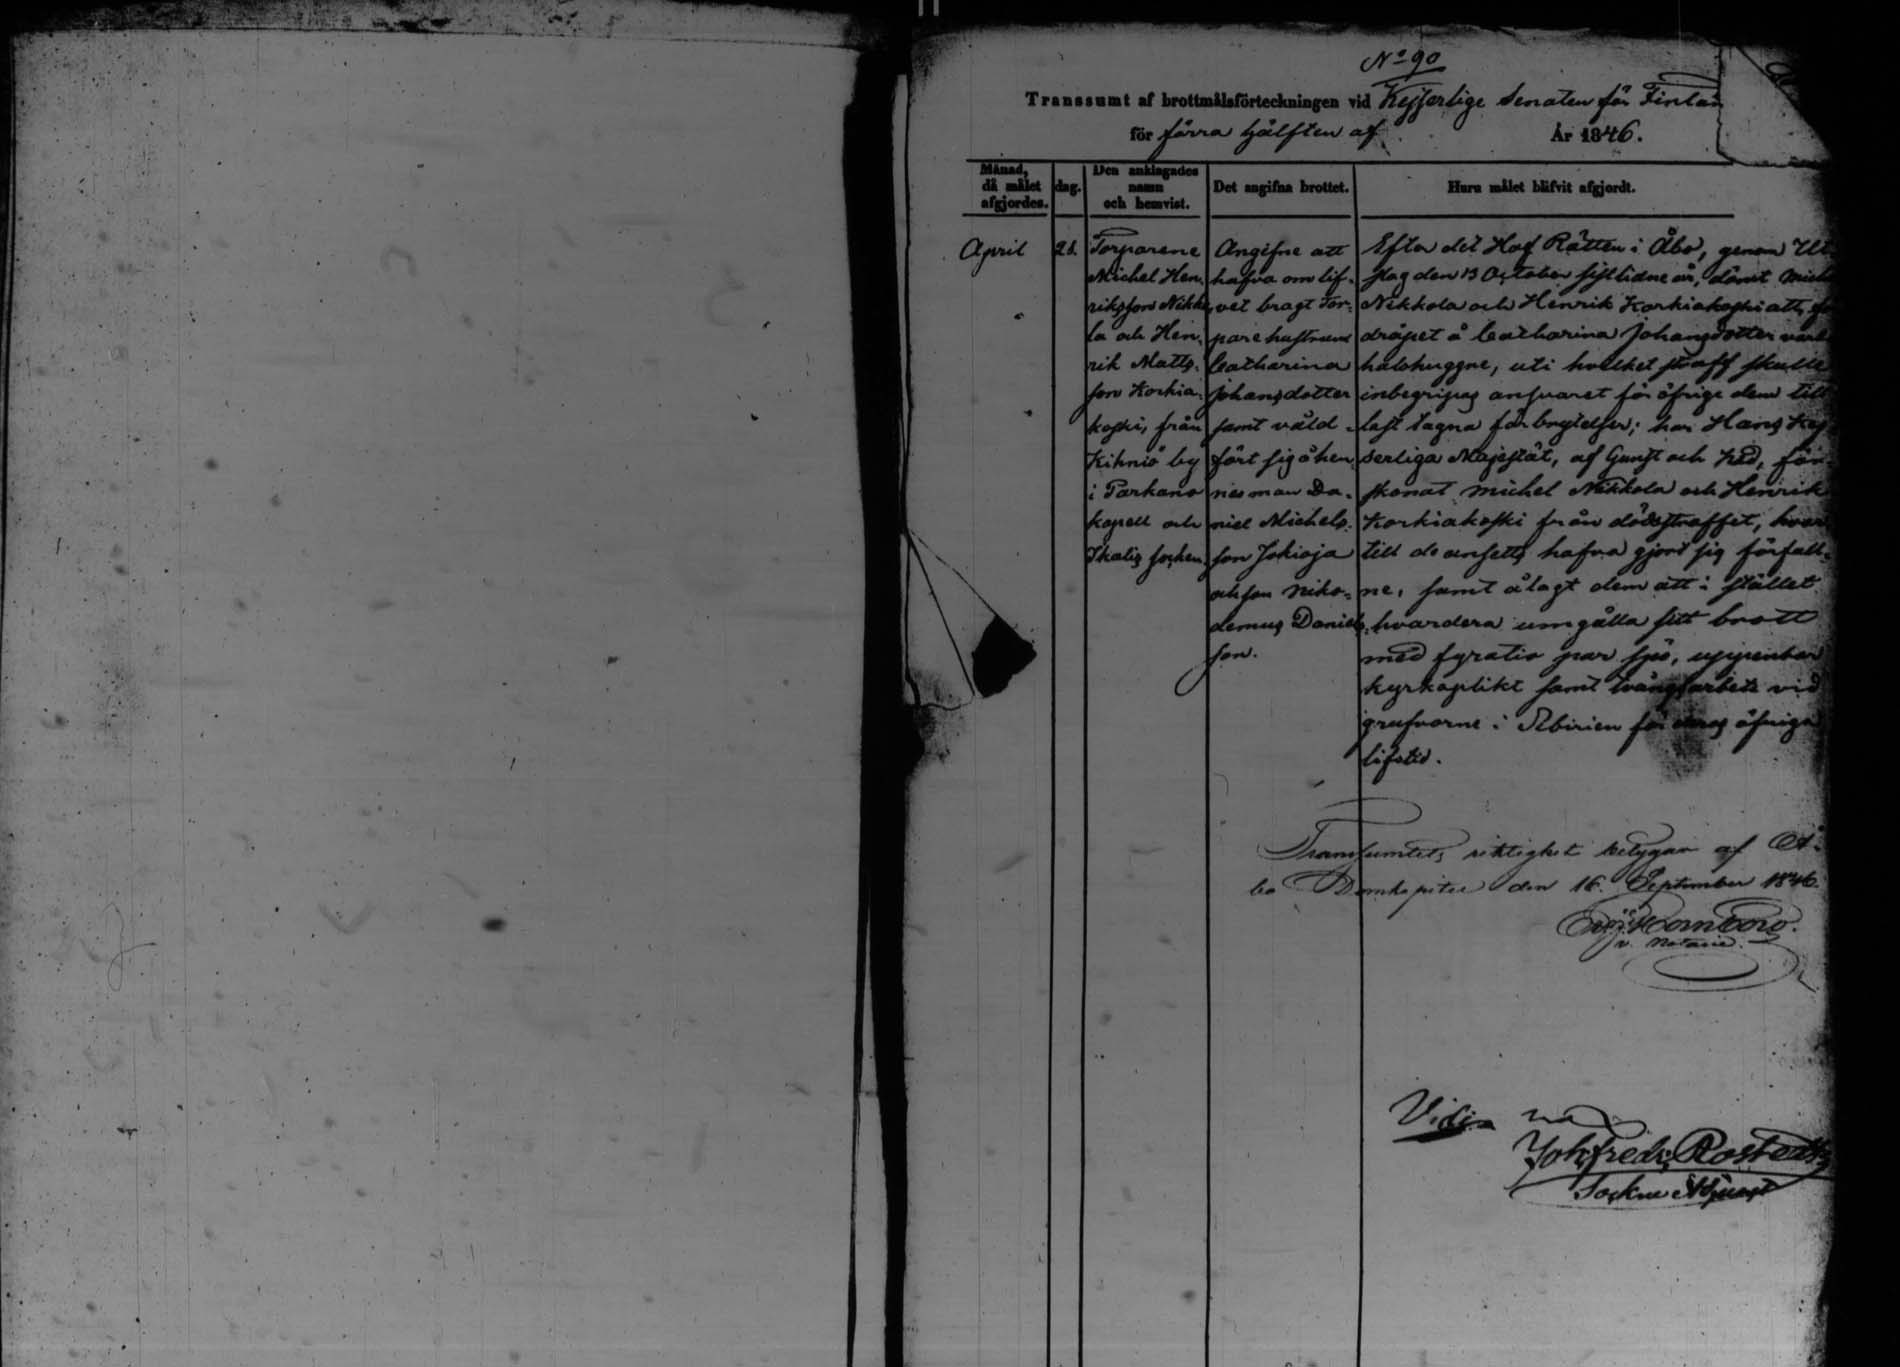 No 90
Transsumt af brottmålsförteckningen vid Kejserlige Senaten för Finlan
för förra hälften af År 1846.
Månad, då målet afgjordes.
dag.
Den anklagades namn och hemvist.
Det angifna brottet.
Huru målet blifvit afgjordt.
April
21.
Torparene
Michel Hen-
riksson Nikko-
la och Hen-
rik Matts-
son Korkia-
koski, från
Kihniö by
i Parkano
kapell och
Ikalis socken.
Angifne att
hafva om lif-
vet bragt Tor-
pare hustrun
Catharina
Johansdotter
samt våld-
fört sig å hen-
nes man Da-
niel Michels-
son Jokioja
och son Niko-
demus Daniels-
son.
Efter det Hof Rätten i Åbo, genom Ut
slag den 13 October sistlidne år, dömt
Nikkola och Henrik Korkiakoski att, 
dråpet å Catharina Johansdotter
halshuggne, uti hvilket straff skulle
inbegripas ansvaret för öfrige dem till
last lagna förbrytelser; har Hans Kej
serliga Majestät, af Gunst och Nåd, för-
skonat Michel Nikkola och Henrik
Korkiakoski från dödsstraffet, hvar
till de ansetts hafva gjort sig förfall-
ne, samt ålagt dem att i stället
hvardera umgälla sitt brott
med fyratio par spö, uppenbar
kyrkoplikt samt tvångsarbete vid
grufvorne i Sibirien för deras öfriga
lifstid.
Transumtets riktighet betygar af Å-
bo Domkapitel den 16 September 1846.
v. Notarie.
Vidi
Joh. Fredr. Rostedt
Sockne Adjunct